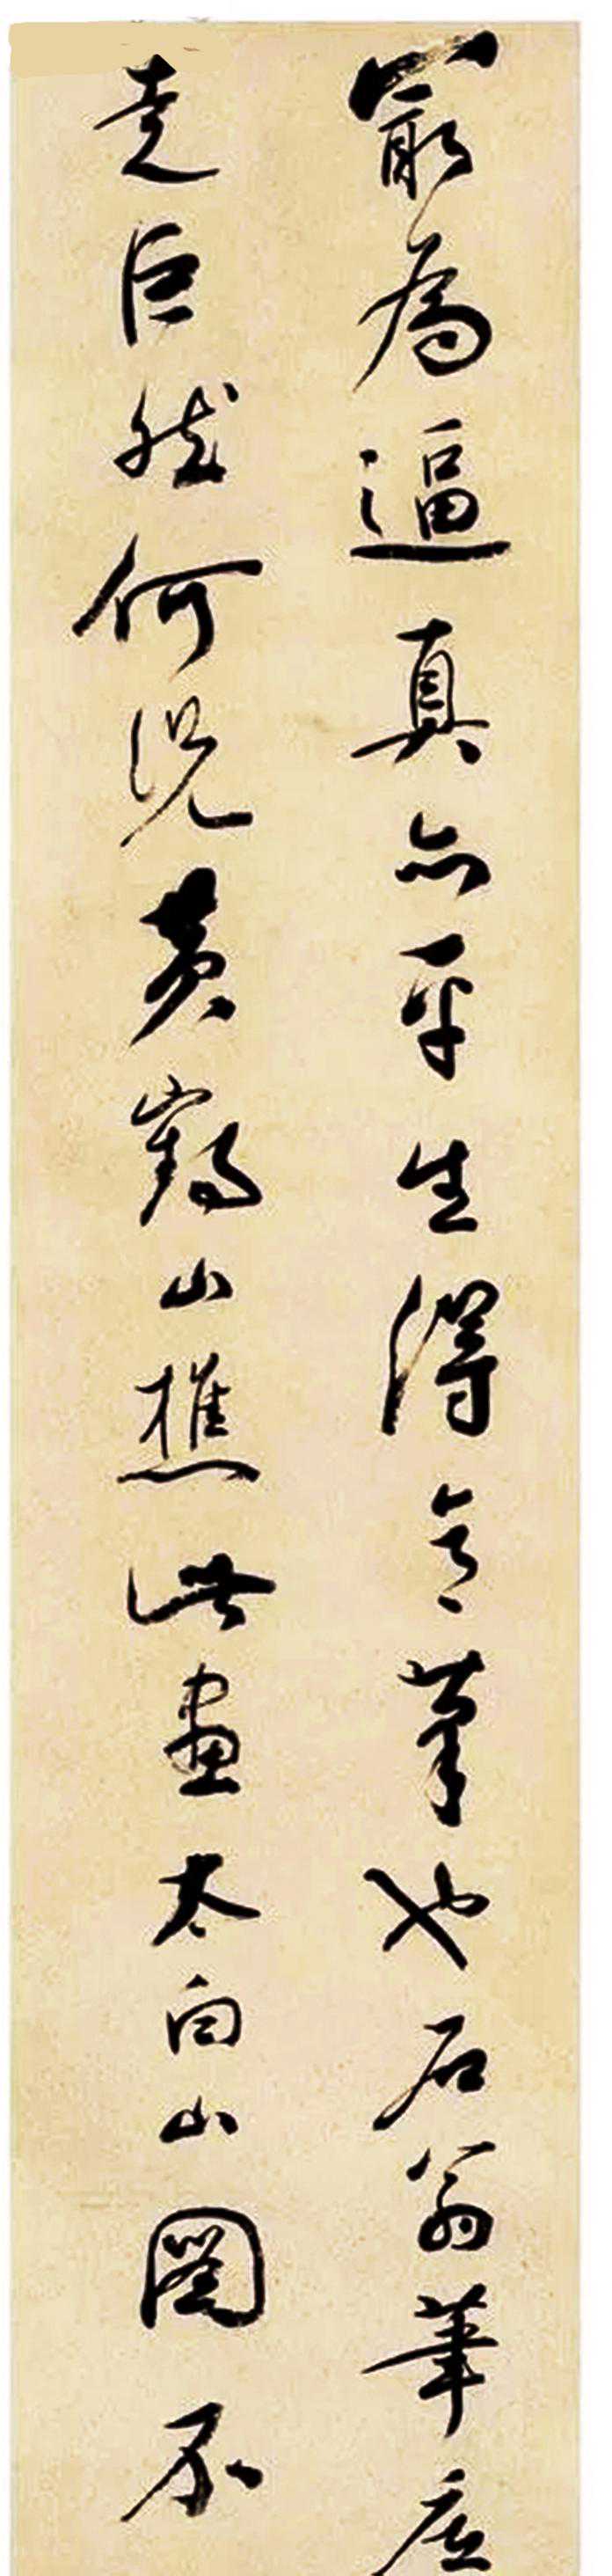 最為逼真亦平生得意筆也石翁筆底
走巨然何況黃鶴山樵此畫太白山圖不